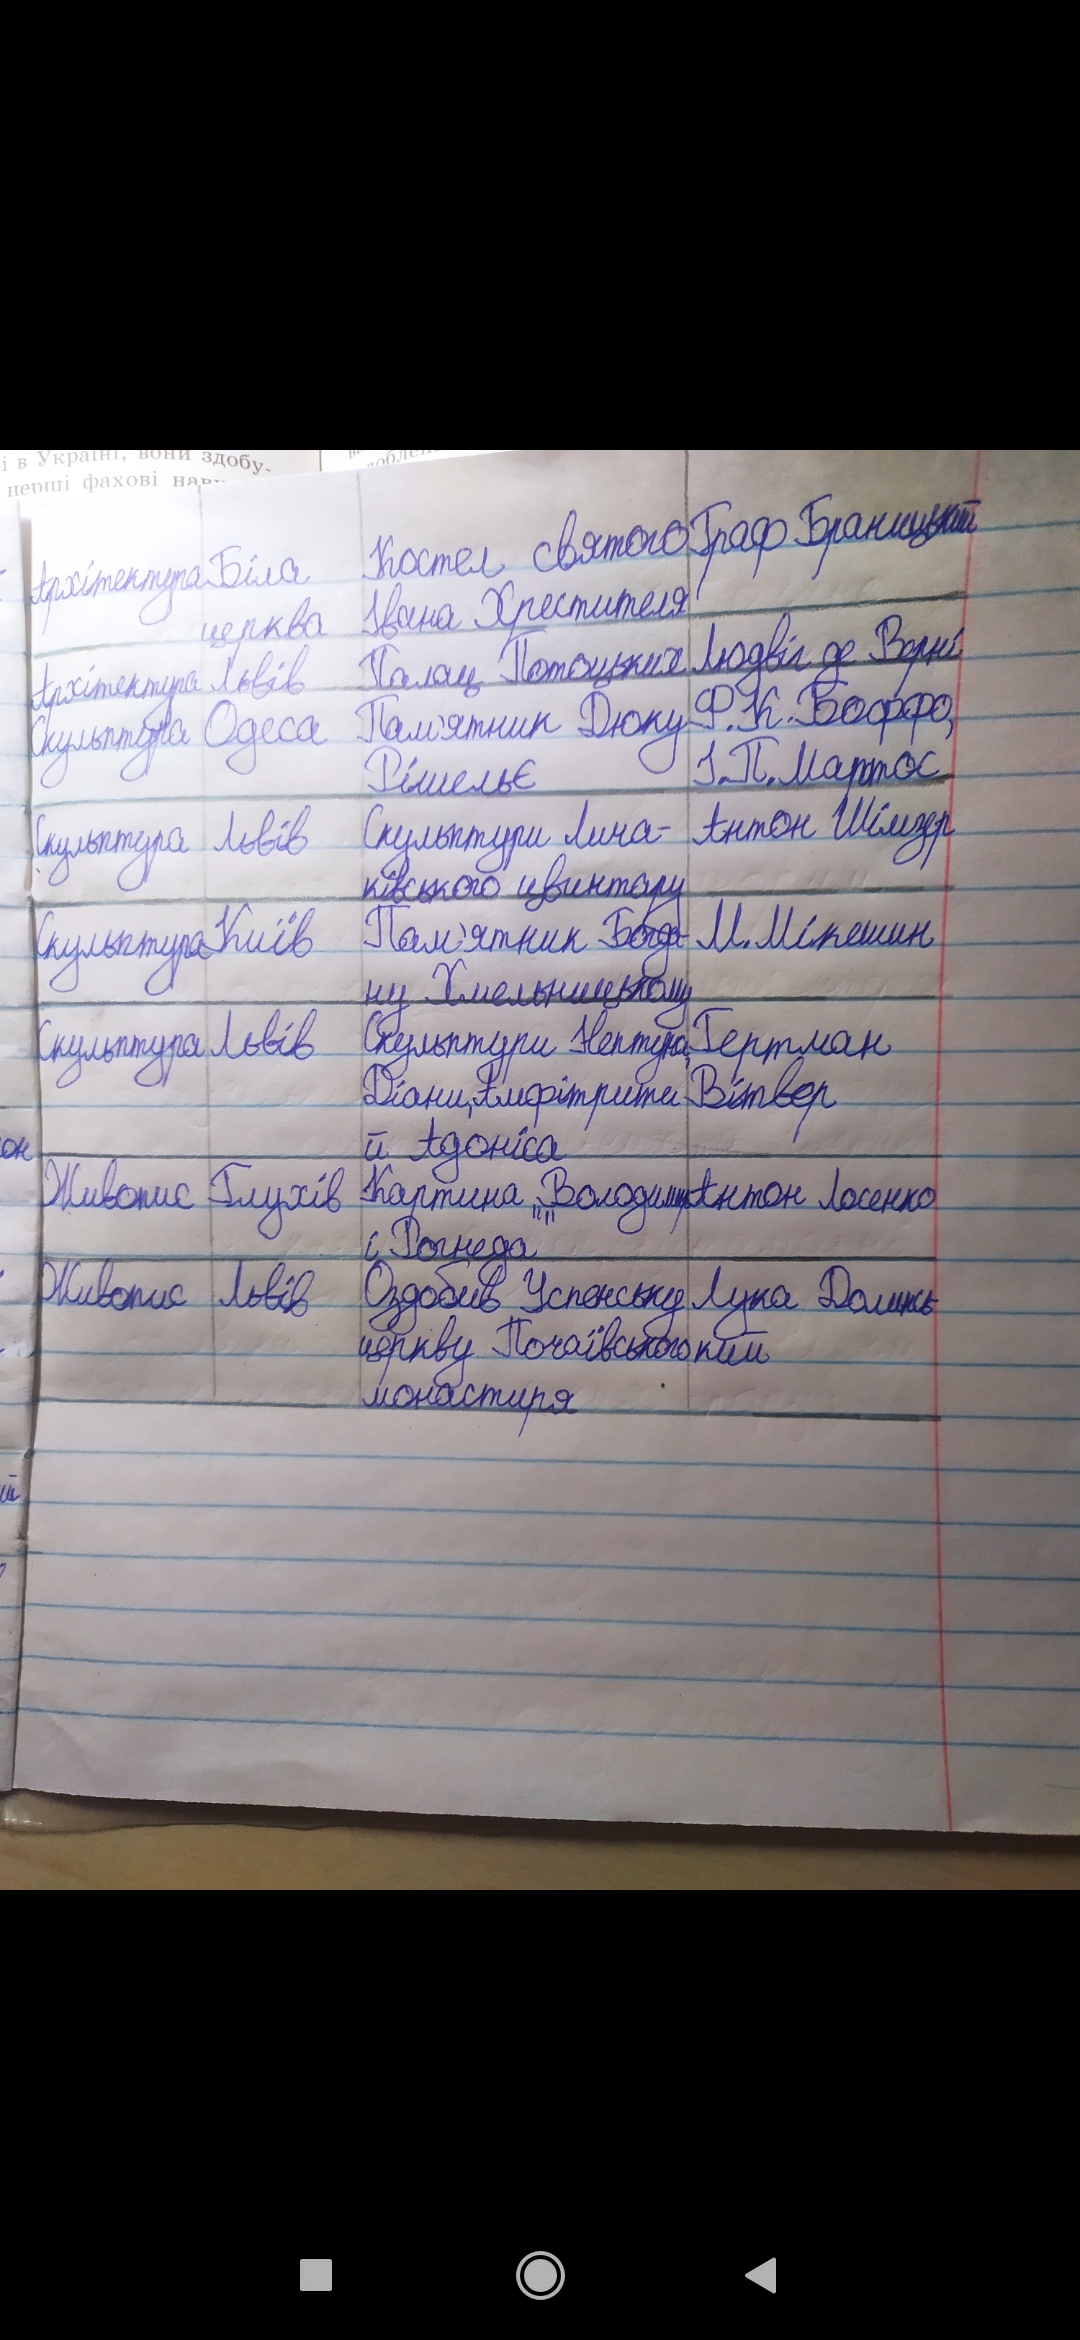 і в Україні, вони здобу-
перші фахові
Архітектура Біла Костел святого Граф Браницький
церква Івана Хрестителя
Архітектура Львів Палац Потоцьких Людвіг де Верні
Скульптура Одеса Пам'ятник Дюку Ф.К. Боффо,
Рішельє І.П. Мартос
Скульптура Львів Скульптури Лича- Антон Шімзер
ківського цвинтару
Скульптура Київ Пам'ятник Богда- М. Мікешин
ну Хмельницькому
Скульптура Львів Скульптури Нептуна, Гертман
Діани, Амфітрити Вітвер
й Адоніса
Живопис Глухів Картина "Володимир Антон Лосенко
і Рогнеда"
Живопис Львів Оздобив Успенську Лука Долинсь
церкву Почаївського кий
монастиря